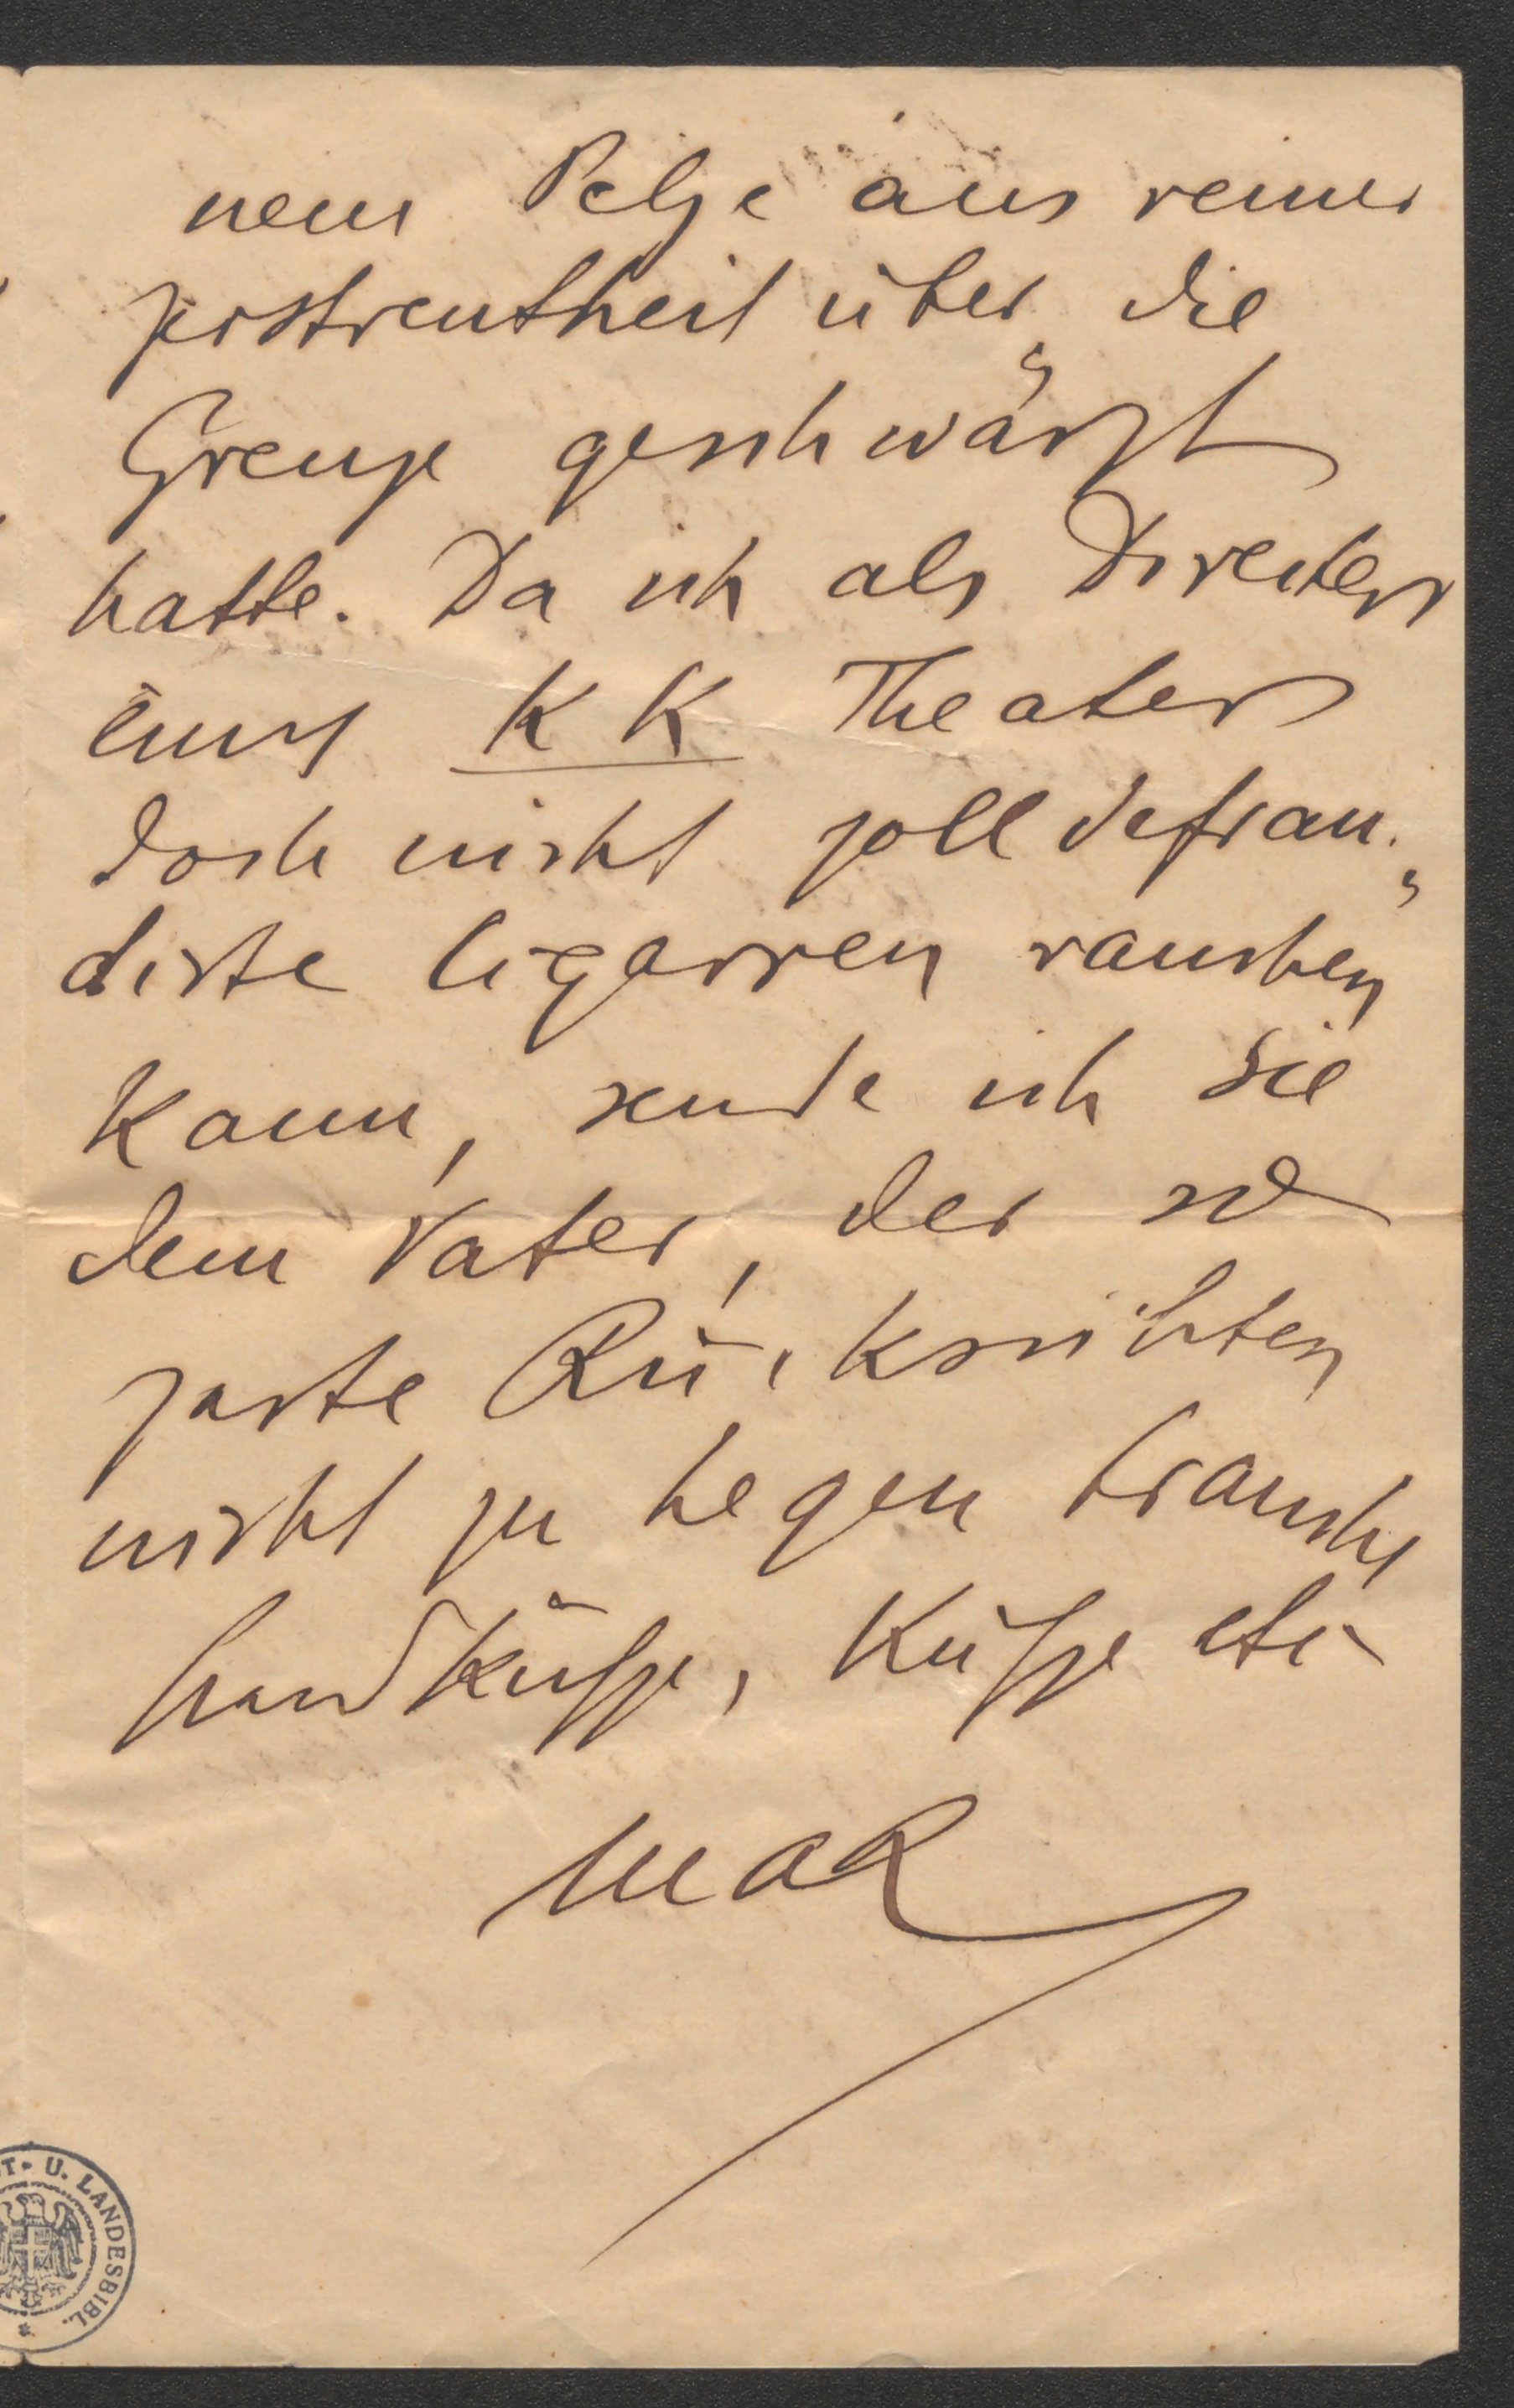 nem Pelze aus reiner
Zerstreutheit über die
Grenze geschwärzt
hatte. Da ich als Director
eines KK Theaters
doch nicht zolldefrau-
dirte Cigarren rauchen
kann, sende ich sie
dem Vater, der so
zarte Rücksichten
nicht zu hegen braucht
Handküsse, Küsse etc
Max
T- U. LANDESBIBL.